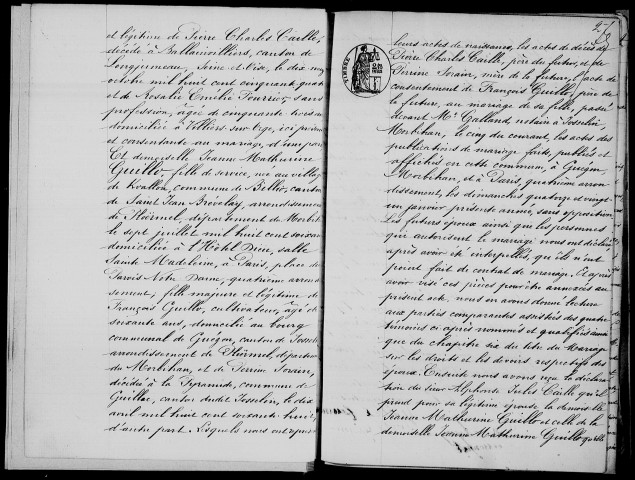 et légitime de Pierre Charles Caille,
décédé à Ballainvilliers, canton de
Longjumeau, Seine et Oise, le dix neuf
octobre mil huit cent cinquante quatre
et de Rosalie Emélie Fourrier, sans
profession, âgée de cinquante trois ans
domiciliée à Villiers sur Orge, ici présente
et consentante au mariage, d'une part
Et demoiselle Jeanne Mathurine
Guillo, fille de service, née au village
de Kvallon, commune de Billio, canton
de Saint Jean Brévelay, arrondissement
de Ploërmel, département du Morbihan
le sept juillet mil huit cent soixante
domiciliée à l'Hôtel Dieu, salle
Sainte Madeleine, à Paris, place du
Parvis Notre Dame, quatrième arron-
dissement, fille majeure et légitime de
François Guillo, cultivateur, âgé de
soixante ans, domicilié au bourg
communal de Guégon, canton de Josselin
arrondissement de Ploërmel, département
du Morbihan, et de Perrine Sorain,
décédée à la commune de
Guillac, canton dudit Josselin, le dix
avril mil huit cent soixante huit,
d'autre part. Lesquels nous ont représenté
27
TIMBRE
leurs actes de naissances, les actes de décès de
Pierre Charles Caille, père du futur, et de
Perrine Sorain, mère de la future, l'acte de
consentement de François Guillo, père de
la future, au mariage de sa fille, passé
devant Me Galland, notaire à Josselin
Morbihan, le cinq du courant, les actes des
publications de mariage faites, publiés et
affichés en cette commune, à Guégon
Morbihan, et à Paris, quatrième arron
dissement, les dimanches quatorze et vingt
un janvier présente année, sans opposition
Les futurs époux ainsi que les personnes
qui autorisent le mariage nous ont déclaré
après avoir été interpellés, qu'ils n'ont
point fait de contrat de mariage. Et après
avoir visé ces pièces pour être annexées au
présent acte, nous en avons donné lecture
aux parties comparantes assistées des quatre
témoins ci après nommés et qualifiés ainsi
que du chapitre six du titre du Mariage
sur les droits et les devoirs respectifs des
époux. Ensuite nous avons reçu la déclara
tion du sieur Alphonse Jules Caille qu'il
prend pour sa légitime épouse la demoiselle
Jeanne Mathurine Guillo et celle de la
demoiselle Jeanne Mathurine Guillo qu'elle